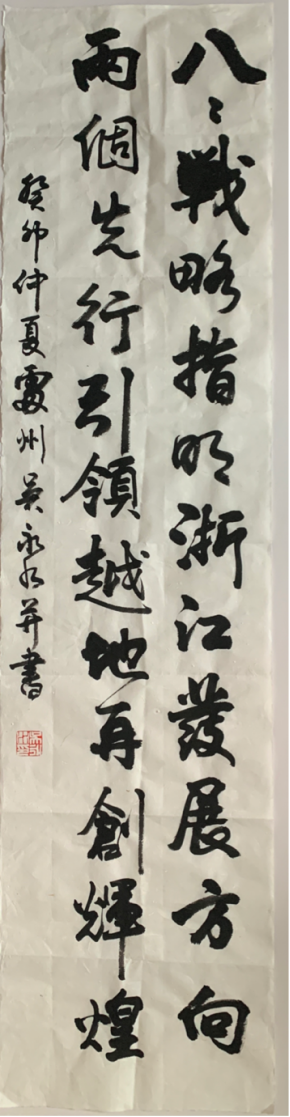 八〻戰略指明浙江發展方向
兩個先行引領越地再創輝煌
癸卯仲夏處州吴永水并書